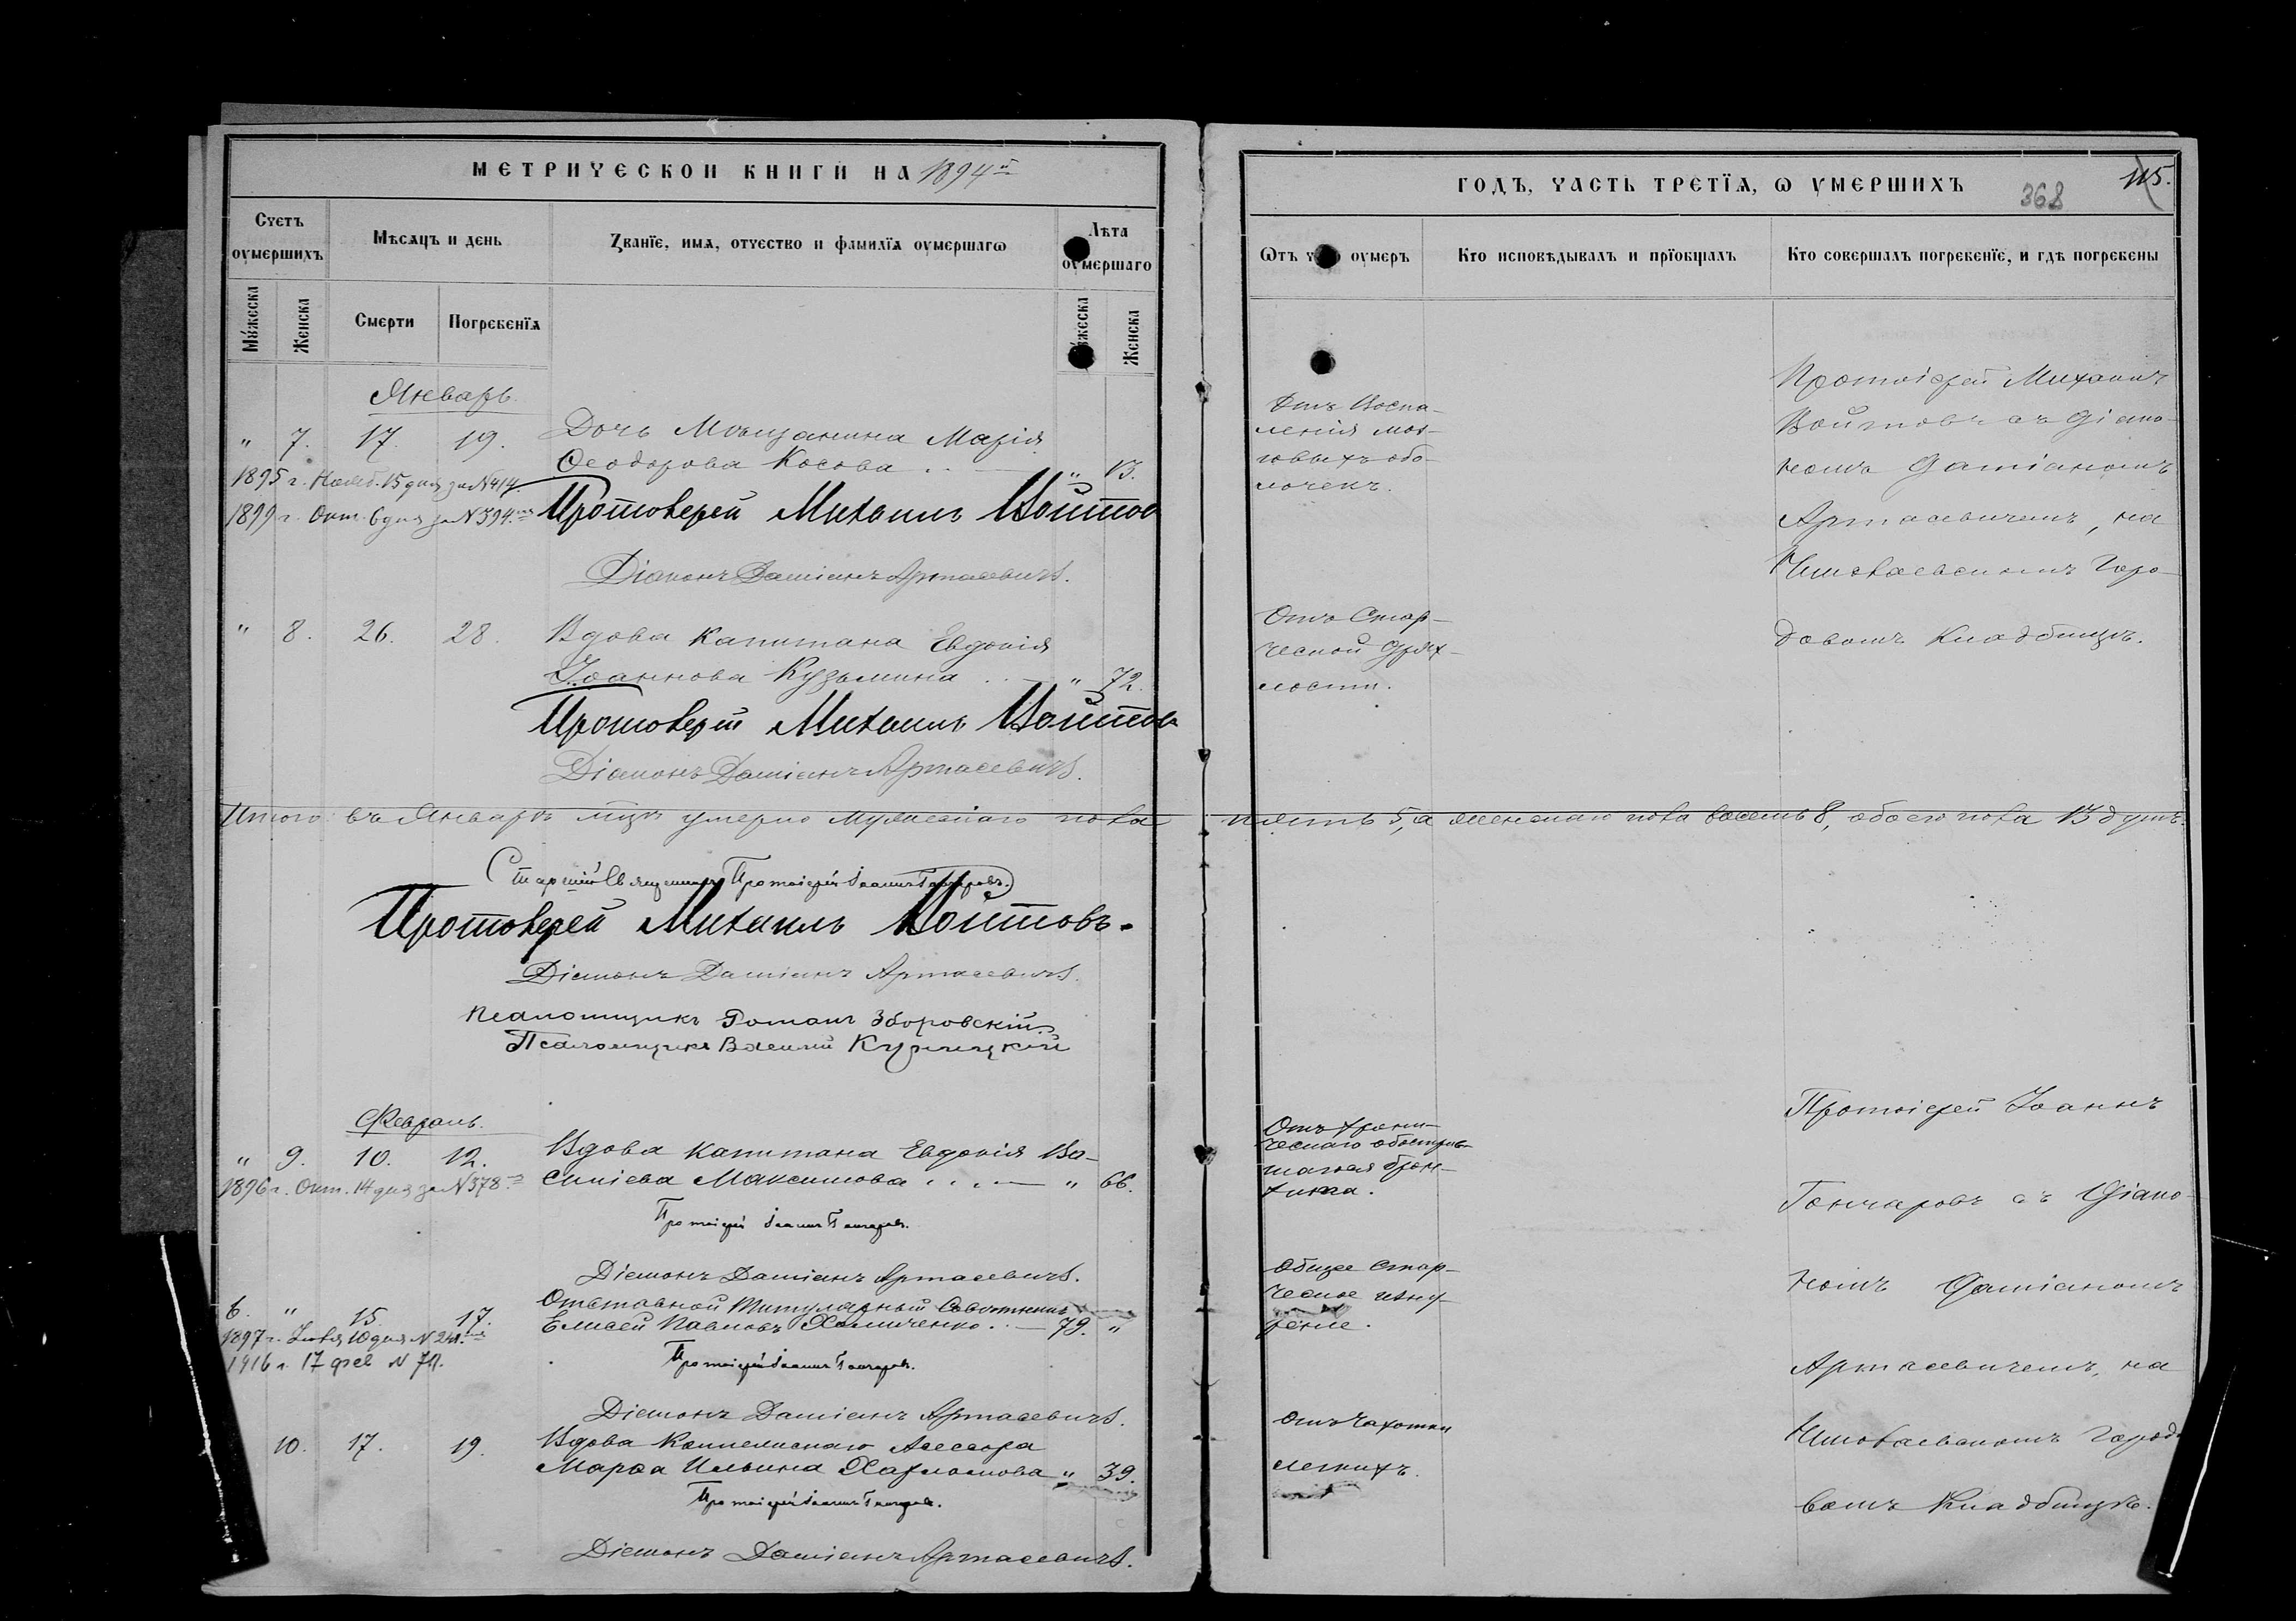 МЕТРИЧЕСКОЙ КНИГИ НА 1894й
Счетъ оумершихъ
Мѣсяцъ и день
Званїе, имя, отчество и фамилїя оумершагѡ
Лѣта оумершаго
Мужеска
Женска
Смерти
Погребенїя
Женска
Январь.
" 7. 17. 19. Дочь Мѣщанина Марія
Ѳеодорова Косова . . — " 13.
1895 г. Нояб. 15 дня за №414.
1899 г. Окт. 6 дня за №394.
Протоіерей Михаилъ Войтов
Діаконъ Даміанъ Артасевичъ.
" 8. 26. 28. Вдова Капитана Евдокія
Іоаннова Кузьмина . . — " 72.
Протоіерей Михаилъ Войтов
Діаконъ Даміанъ Артасевичъ.
Итого въ Январѣ мцѣ умерло мужескаго пола
Старшій Священникъ Протоіерей Іоаннъ Гончаровъ.
Протоіерей Михаилъ Войтовъ.
Діаконъ Даміанъ Артасевичъ.
Псаломщикъ Романъ Зборовскій.
Псаломщикъ Василій
Февраль.
" 9. 10. 12. Вдова Капитана Евдокія Ва-
силіева Максимова . . . — " 66.
1896 г. Окт. 14 дня за №378
Протоіерей Іоаннъ Гончаровъ.
Діаконъ Даміанъ Артасевичъ.
6. " 15. 17. Отставной Титулярный Совѣтникъ
Елисей Павловъ Халиченко . — 79. "
1897 г. Іюля 10 дня №
1916 г. 17 фев №
Протоіерей Іоаннъ Гончаровъ.
Діаконъ Даміанъ Артасевичъ.
10. 17. 19. Вдова Коллежскаго Асессора
Марѳа Ильина Харламова " 39.
Протоіерей Іоаннъ Гончаровъ.
Діаконъ Даміанъ Артасевичъ.
ГОДЪ, ЧАСТЬ ТРЕТЇЯ, Ѡ УМЕРШИХЪ
368
115.
Ѡтъ оумеръ
Кто исповѣдывалъ и прїобщалъ
Кто совершалъ погребенїе, и гдѣ погребены
Отъ Воспа-
ленія моз-
говыхъ обо-
лочекъ.
Протоіерей Михаилъ
Войтовъ съ Діако-
номъ Даміаномъ
Артасевичемъ, на
Николаевскомъ Горо-
довомъ Кладбищѣ.
Отъ Стар-
ческой дрях-
лости.
пять 5, а женскаго пола восемь 8, обоего пола 13 душъ.
Отъ хрони-
ческаго
бron-
хита.
Общее Стар-
ческое изну-
реніе.
Отъ Чахотки
легкихъ.
Протоіерей Іоаннъ
Гончаровъ съ Діако-
номъ Даміаномъ
Артасевичемъ, на
Николаевскомъ Городо-
вомъ Кладбищѣ.